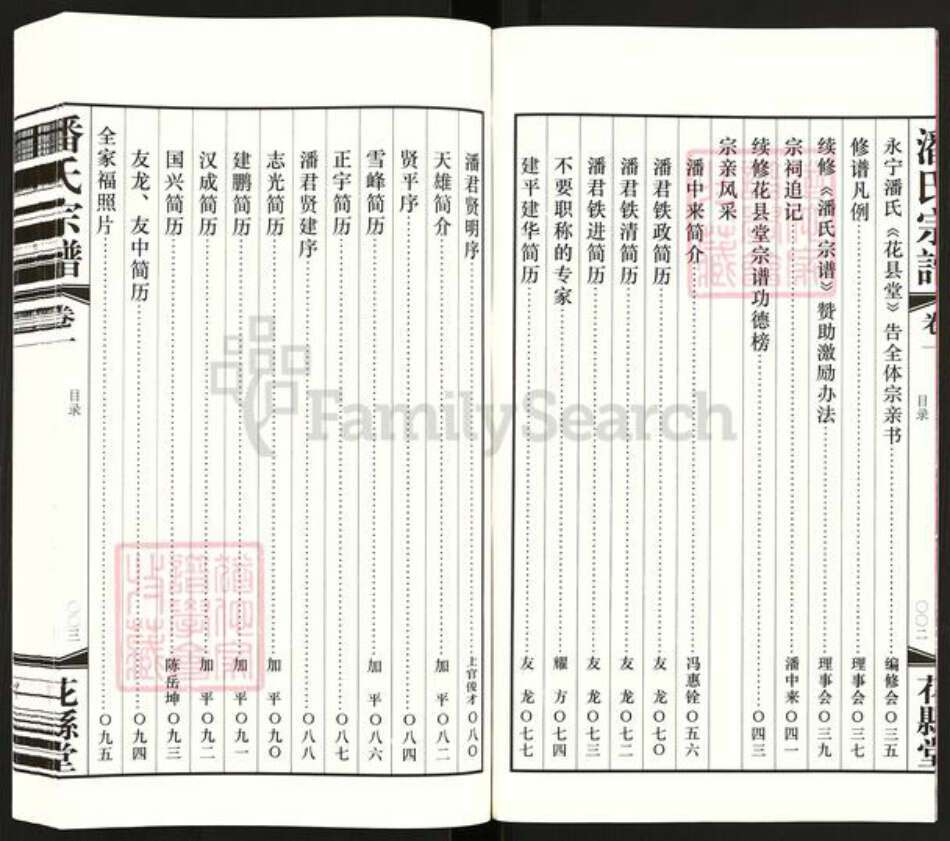 潘氏宗谱 卷一 目录 〇〇二 花縣堂
永宁潘氏《花县堂》告全体宗亲书 编修会 〇三五
修谱凡例 理事会 〇三七
续修《潘氏宗谱》赞助激励办法 理事会 〇三九
宗祠追记 潘中来 〇四一
续修花县堂宗谱功德榜 〇四三
宗亲风采
潘中来简介 冯惠铨 〇五六
潘君铁政简历 友龙 〇七〇
潘君铁清简历 友龙 〇七二
潘君铁进简历 友龙 〇七三
不要职称的专家 耀方 〇七四
建平建华简历 友龙 〇七七
潘君贤明序 上官俊才 〇八〇
天雄简介 加平 〇八二
贤平序 〇八四
雪峰简历 加平 〇八六
正宇简历 〇八七
潘君贤建序 〇八八
志光简历 加平 〇九〇
建鹏简历 加平 〇九一
汉成简历 加平 〇九二
国兴简历 陈岳坤 〇九三
友龙、友中简历 〇九四
全家福照片 〇九五
潘氏宗谱 卷一 目录 〇〇三 花縣堂
FamilySearch